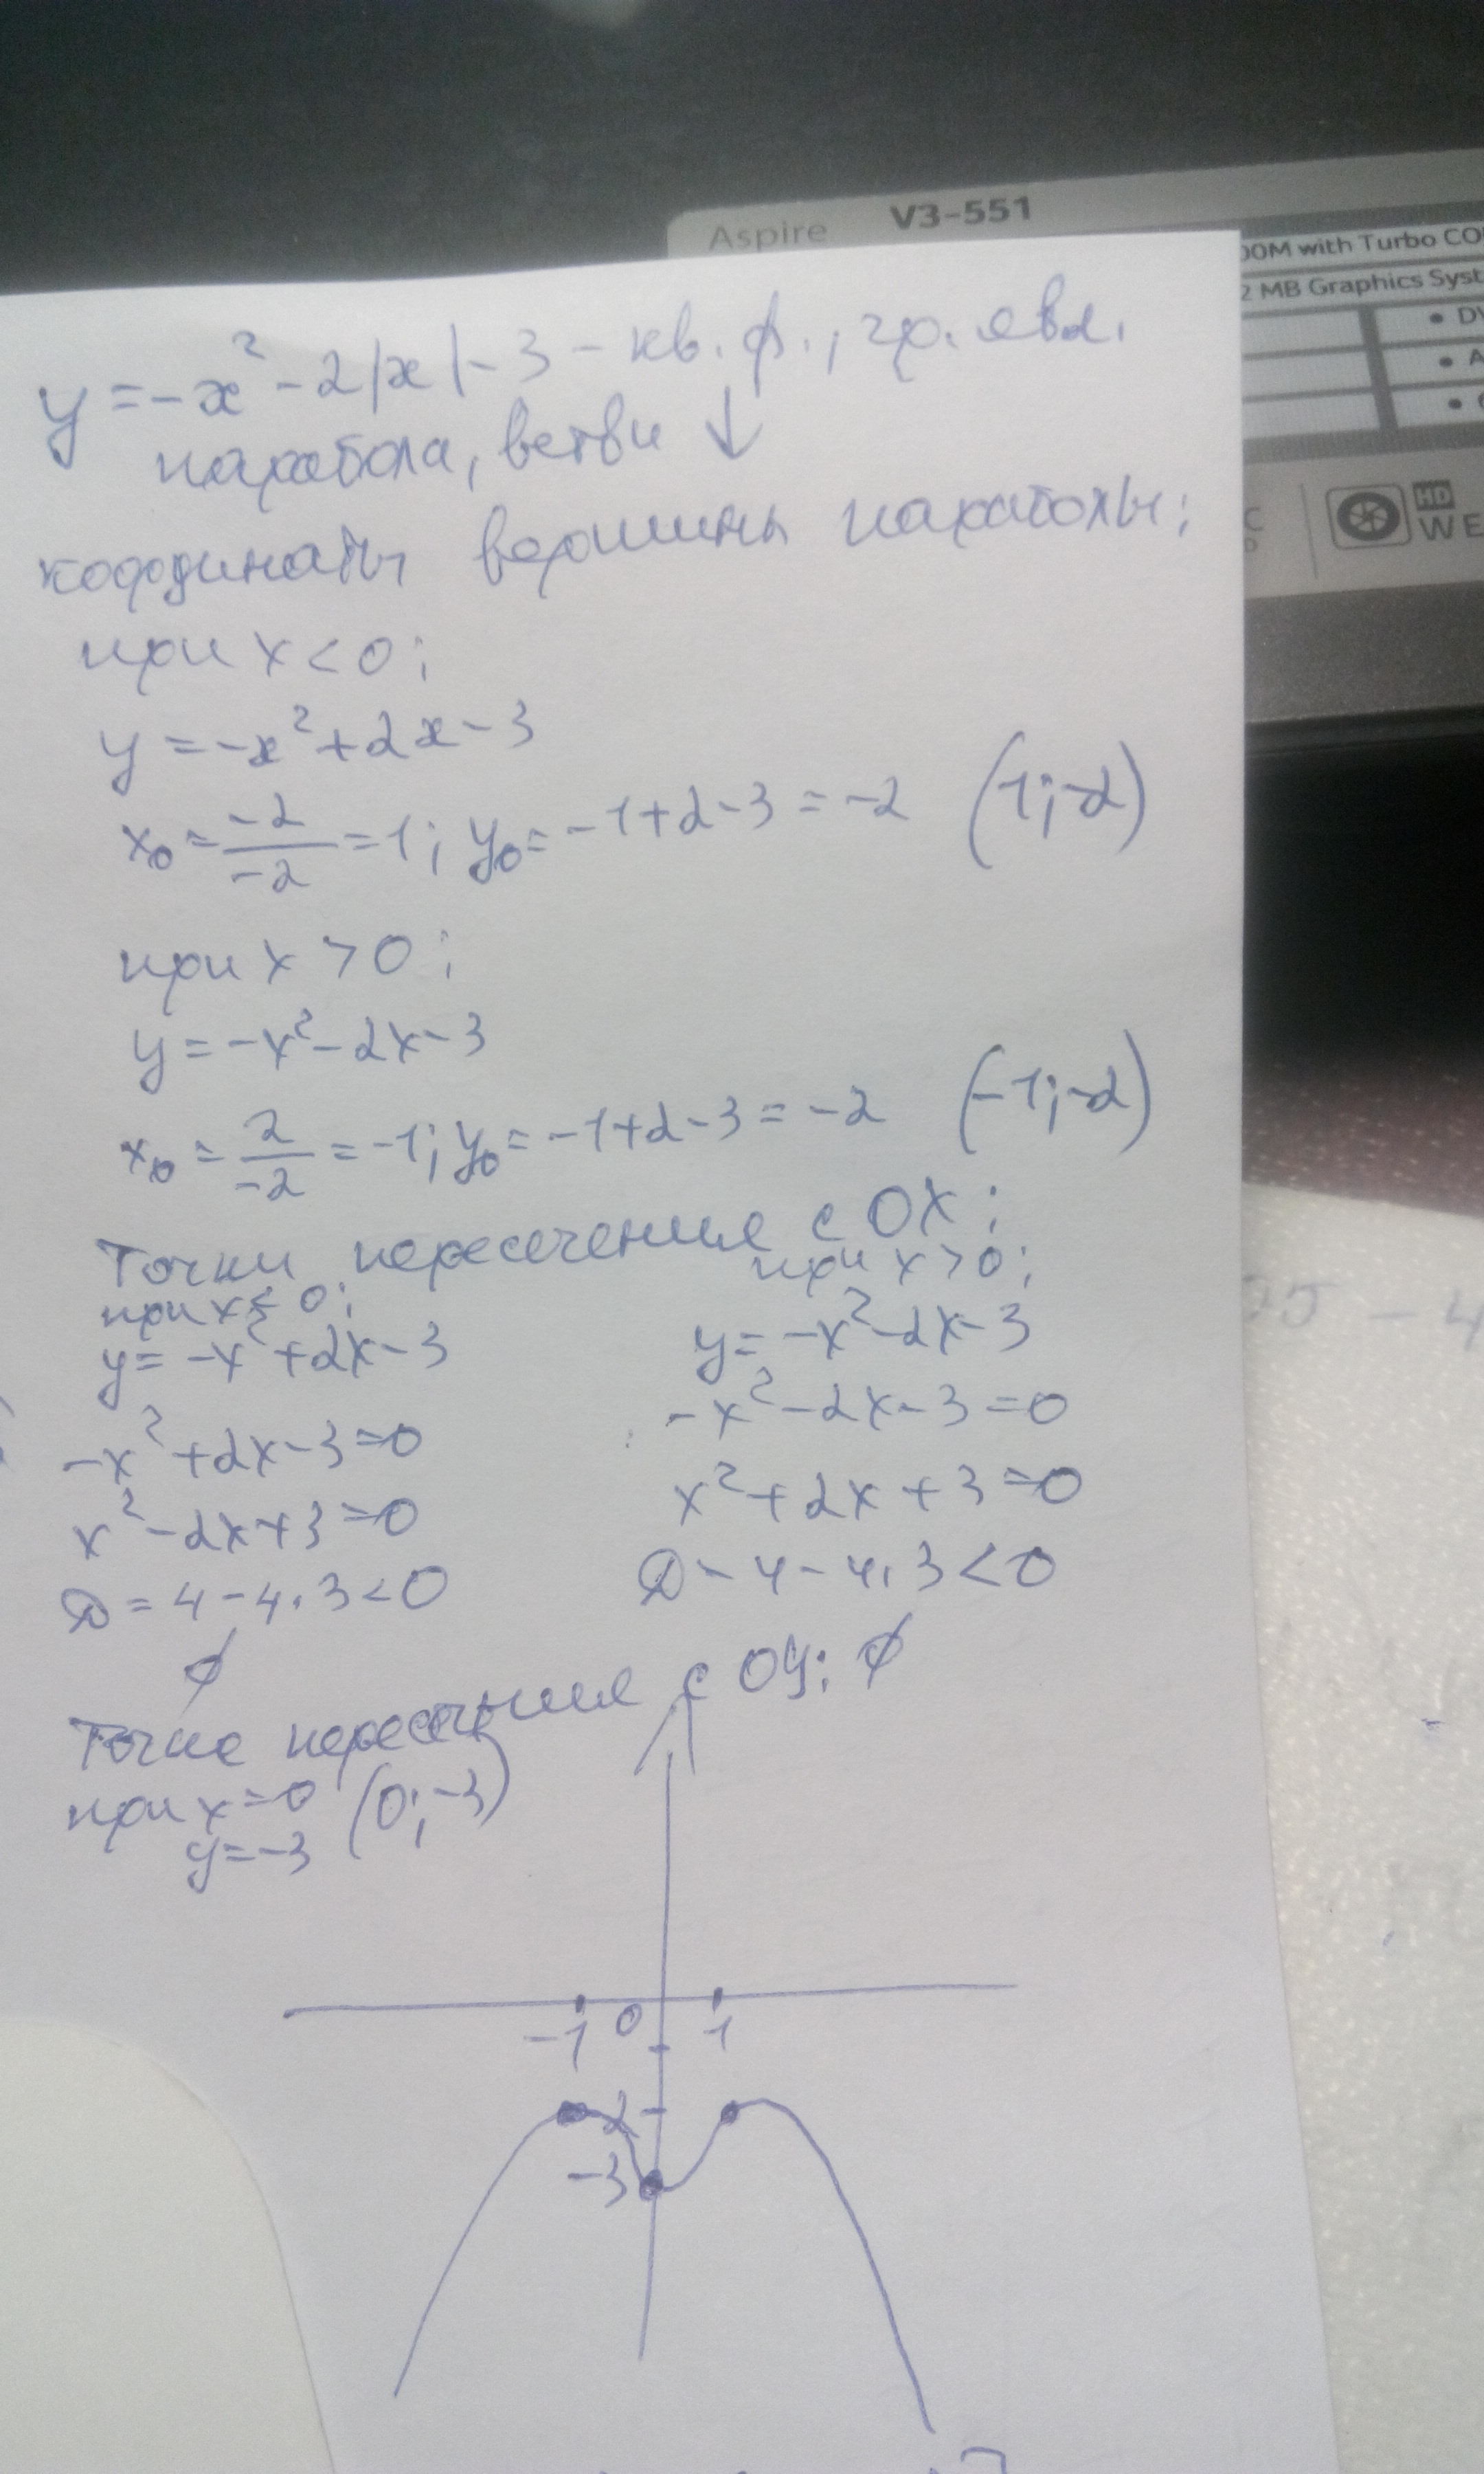 Aspire V3-551
OOM with Turbo CO
2 MB Graphics Syst
• DV
• A
HD
WE
y = -x² - 2|x| - 3 - кв. ф., гр. явл.
парабола, ветви ↓
координаты вершины параболы:
при x < 0:
y = -x² + 2x - 3
x₀ = -2/-2 = 1; y₀ = -1+2-3 = -2 (1;-2)
при x > 0:
y = -x² - 2x - 3
x₀ = 2/-2 = -1; y₀ = -1+2-3 = -2 (-1;-2)
Точки пересечения с OX:
при x < 0: при x > 0:
y = -x² + 2x - 3 y = -x² - 2x - 3
-x² + 2x - 3 = 0 -x² - 2x - 3 = 0
x² - 2x + 3 = 0 x² + 2x + 3 = 0
D = 4 - 4·3 < 0 D - 4 - 4·3 < 0
∅ ∅
Точка пересечения с OY:
при x = 0 (0;-3)
y = -3
-1 0 1
-2
-3